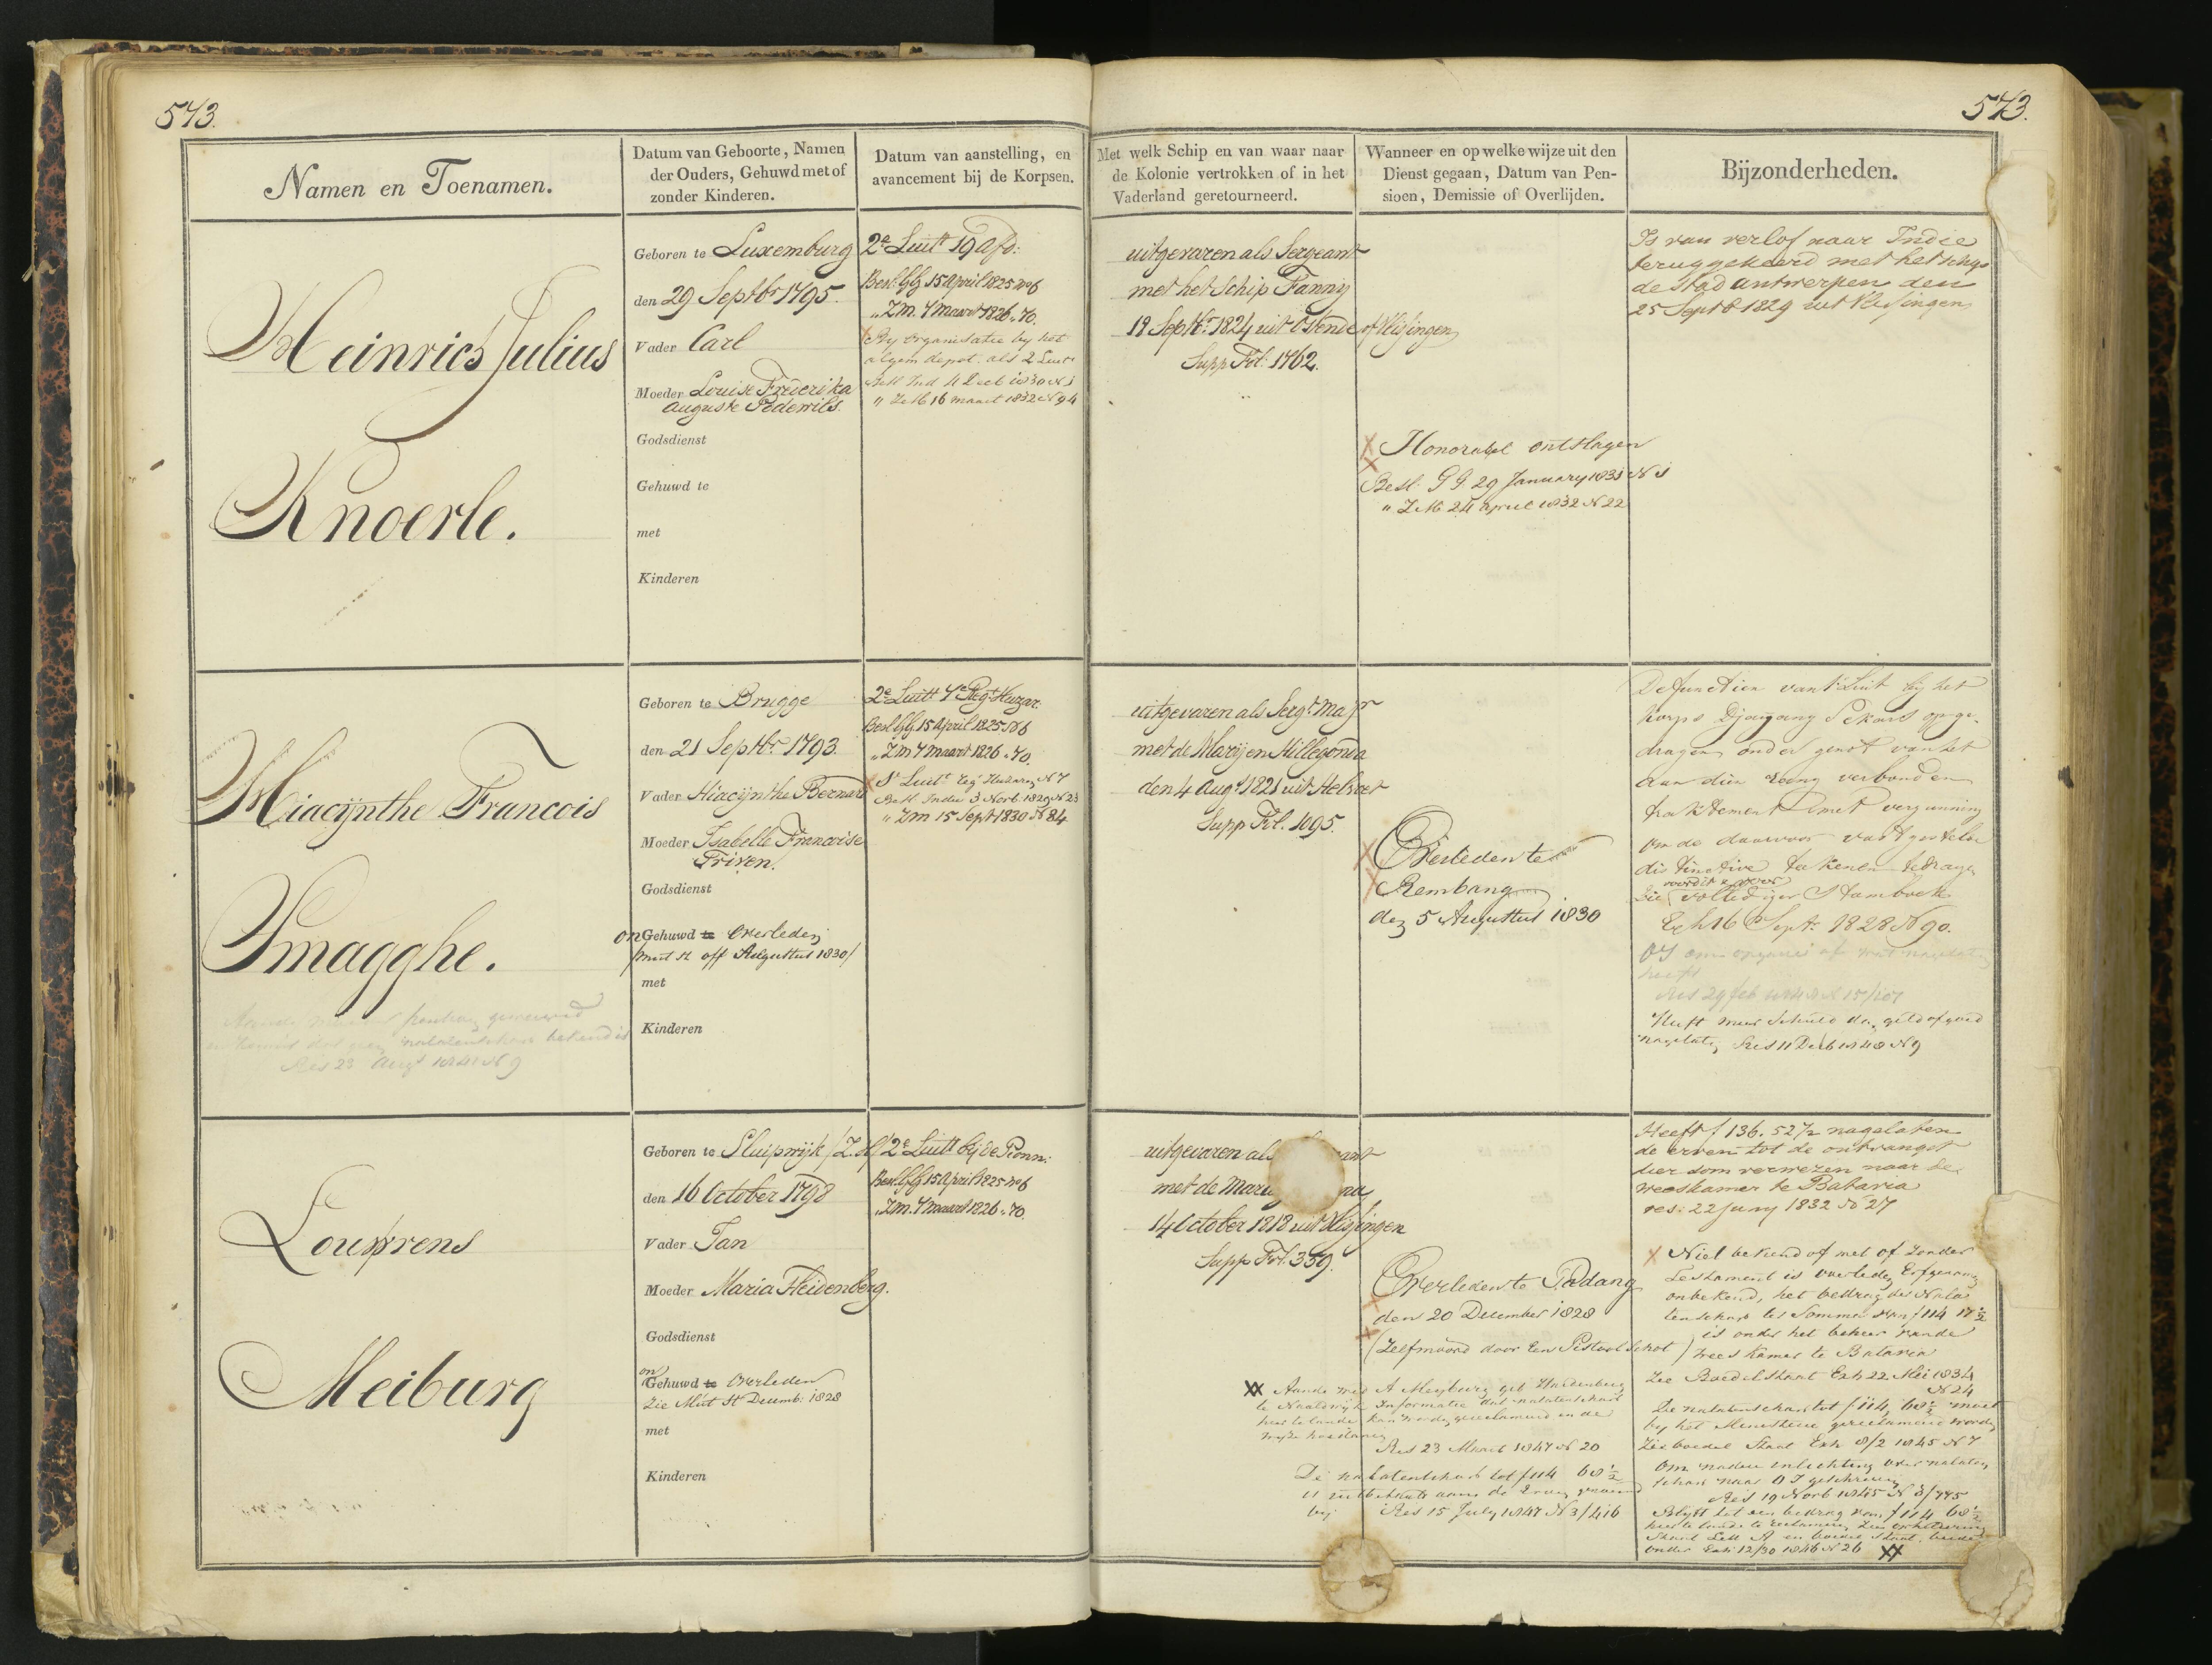 573.
573.
Namen en Toenamen.
Datum van Geboorte, Namen
der Ouders, Gehuwd met of
zonder Kinderen.
Datum van aanstelling, en
avancement bij de Korpsen.
Met welk Schip en van waar naar
de Kolonie vertrokken of in het
Vaderland geretourneerd.
Wanneer en op welke wijze uit den
Dienst gegaan, Datum van Pen-
sioen, Demissie of Overlijden.
Bijzonderheden.
Heinrich Julius
Knoerle.
Geboren te Luxemburg
den 29 Septbr 1795.
Vader Carl
Moeder Louise Frederika
Auguste Podewils.
Godsdienst
Gehuwd te
met
Kinderen
2e Luitt 19 Afd:
Besl. GG 15 April 1825 No 6
" Z.M. 7 maart 1826 " 70.
By Organisatie by het
algem depot als 2 Luit
Besl Ind 4 Decb 1830 N 1
" Z M 16 maart 1832 N 94
uitgevaren als Sergeant
met het Schip Fanny
19 Septbr 1824 uit Ostende of Vlissingen
Supp Fol: 1762.
Honorabel ontslagen
Besl. G G 29 January 1831 N 1
" Z M 24 april 1832 N 22
Is van verlof naar Indie
teruggekeerd met het schip
de Stad Antwerpen den
25 Septr 1829 uit Vlissingen
Hiacijnthe Francois
Smagghe.
Res 23 Augt 1841 N 9
Geboren te Brugge
den 21 Septbr 1793.
Vader Hiacijnthe Bernard
Moeder Isabelle Francoise
Friven.
Godsdienst
on Gehuwd te Overleden
/mut st off Augustus 1830/
met
Kinderen
2e Luitt 7e Regt Huzar.
Besl. GG 15 April 1825 No 6
" Z.M 7 maart 1826 " 70.
1e Luitt Regt Huzaren N 7
Besl Indie 3 Novb. 1829 N 23
" Z M 15 Sept 1830 N 84
uitgevaren als Sergt Majr
met de Marij en Hillegonda
den 4 Augt 1821 uit Helvoet
Supp Fol. 1095.
Overleden te
Rembang
den 5 Augustus 1830
De functien van 1e Luit bij het
Korps Djayang Sekars opge-
dragen onder genot van het
aan dien rang verbonden
traktement met vergunning
om de daarvoor vastgestelde
distinctive tekenen te dragen
Zie voor dit volledige Stamboek
Exh 16 Sept. 1828 No 90.
Res 29 feb 1848 N 15/107
Heeft meer schuld dan geld of goed
nagelaten Res 11 Decb 1848 N 9
Lourens
Meiburg
Geboren te Sluipwijk /Z.H/
den 16 October 1798
Vader Jan
Moeder Maria Heidenberg.
Godsdienst
on Gehuwd te Overleden
Zie Mut St Decemb: 1828
met
Kinderen
2e Luitt bij de Pionn:
Besl. GG 15 April 1825 No 6
" Z.M. 7 maart 1826 " 70.
uitgevaren als
met de Maria
14 October 1818 uit Vlissingen
Supp Fol. 359.
Overleden te Padang
den 20 December 1828
(Zelfmoord door een Pistoolschot)
XX Aan de wed A Meyburg geb Heidenberg
te Naaldwijk Informatie dat nalatenschap
hier te lande kan worden gereclameerd en de
wijze hoedanig
Res 23 Maart 1847 N 20
De nalatenschap tot f 114 68½
is uitbetaald aan de Erven
bij Res 15 July 1847 N 3/416
Heeft f 136.52½ nagelaten
de erven tot de ontvangst
dier som verwezen naar de
weeskamer te Batavia
res: 22 Juny 1832 No 27
Niet bekend of met of zonder
Testament is overleden Erfgenaam
onbekend, het bedrag der Nala
tenschap ter Somma van f 114 17½
is onder het beheer van de
Weeskamer te Batavia
Zie Boedelstaat Exh 22 Mei 1834
N 24
De nalatenschap tot f 114, 68½ moet
by het Ministerie gereclameerd worden
Zie boedel Staat Exh 8/2 1845 N 7
Om nadere inlichting over nalaten
schap naar O I geschreven
Res 19 Novb 1845 N 8/775
Blijft tot een bedrag van f 114 68½
hier te lande te reclameren
Staat Lett A en boedel Staat beide
onder Exh 12/30 1846 N 26 XX